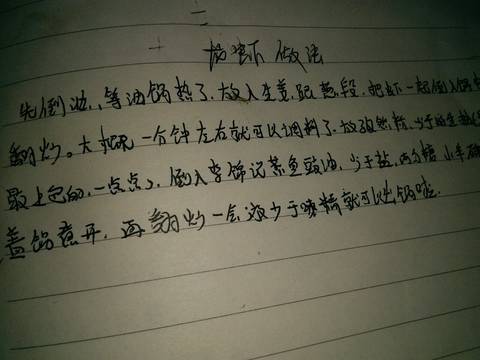 做法
先倒油，等油锅热了，放入生姜，跟葱段，把虾一起倒入锅中
翻炒。大概一分钟左右就可以调料了，放
最上色的，一点点，倒入李锦记蒸鱼豉油，少于盐，
盖锅煮开，再翻炒一会 少于味精就可以出锅啦.